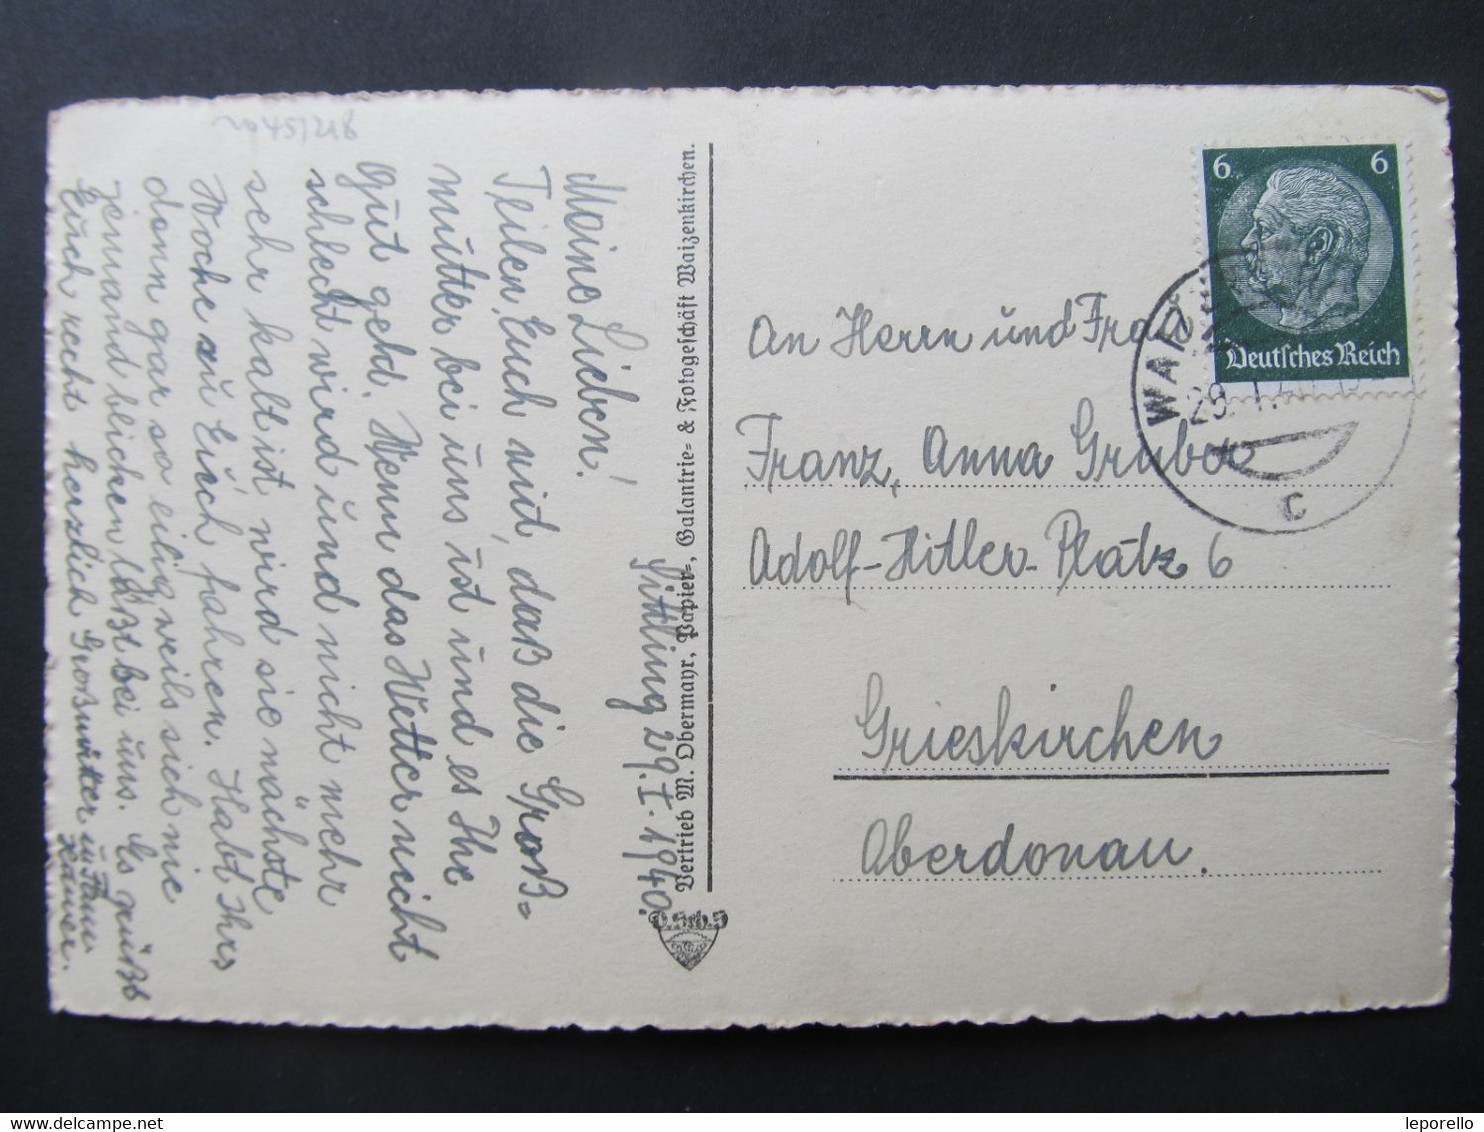 no 45/218
Pittling 29.I.1940.
Meine Lieben!
Teilen Euch mit, daß die Groß=
mutter bei uns ist und es Ihr
Gut geht. Wenn das Wetter nicht
schlecht wird und nicht mehr
sehr kalt ist, wird sie nächste
Woche zu Euch fahren. Habt Ihrs
denn gar so eilig weils sich nie
jemand blicken läßt bei uns. Es grüßt
Euch recht herzlich Großmutter u. Fam.
Vertrieb M. Obermayr, Papier-, Galantrie- & Fotogeschäft Waizenkirchen.
6 6
Deutsches Reich
WAIZ
29. 1. 40
c
An Herrn und Frau
Franz, Anna Gruber
Adolf-Hitler-Platz 6
Grieskirchen
Oberdonau.
leporello